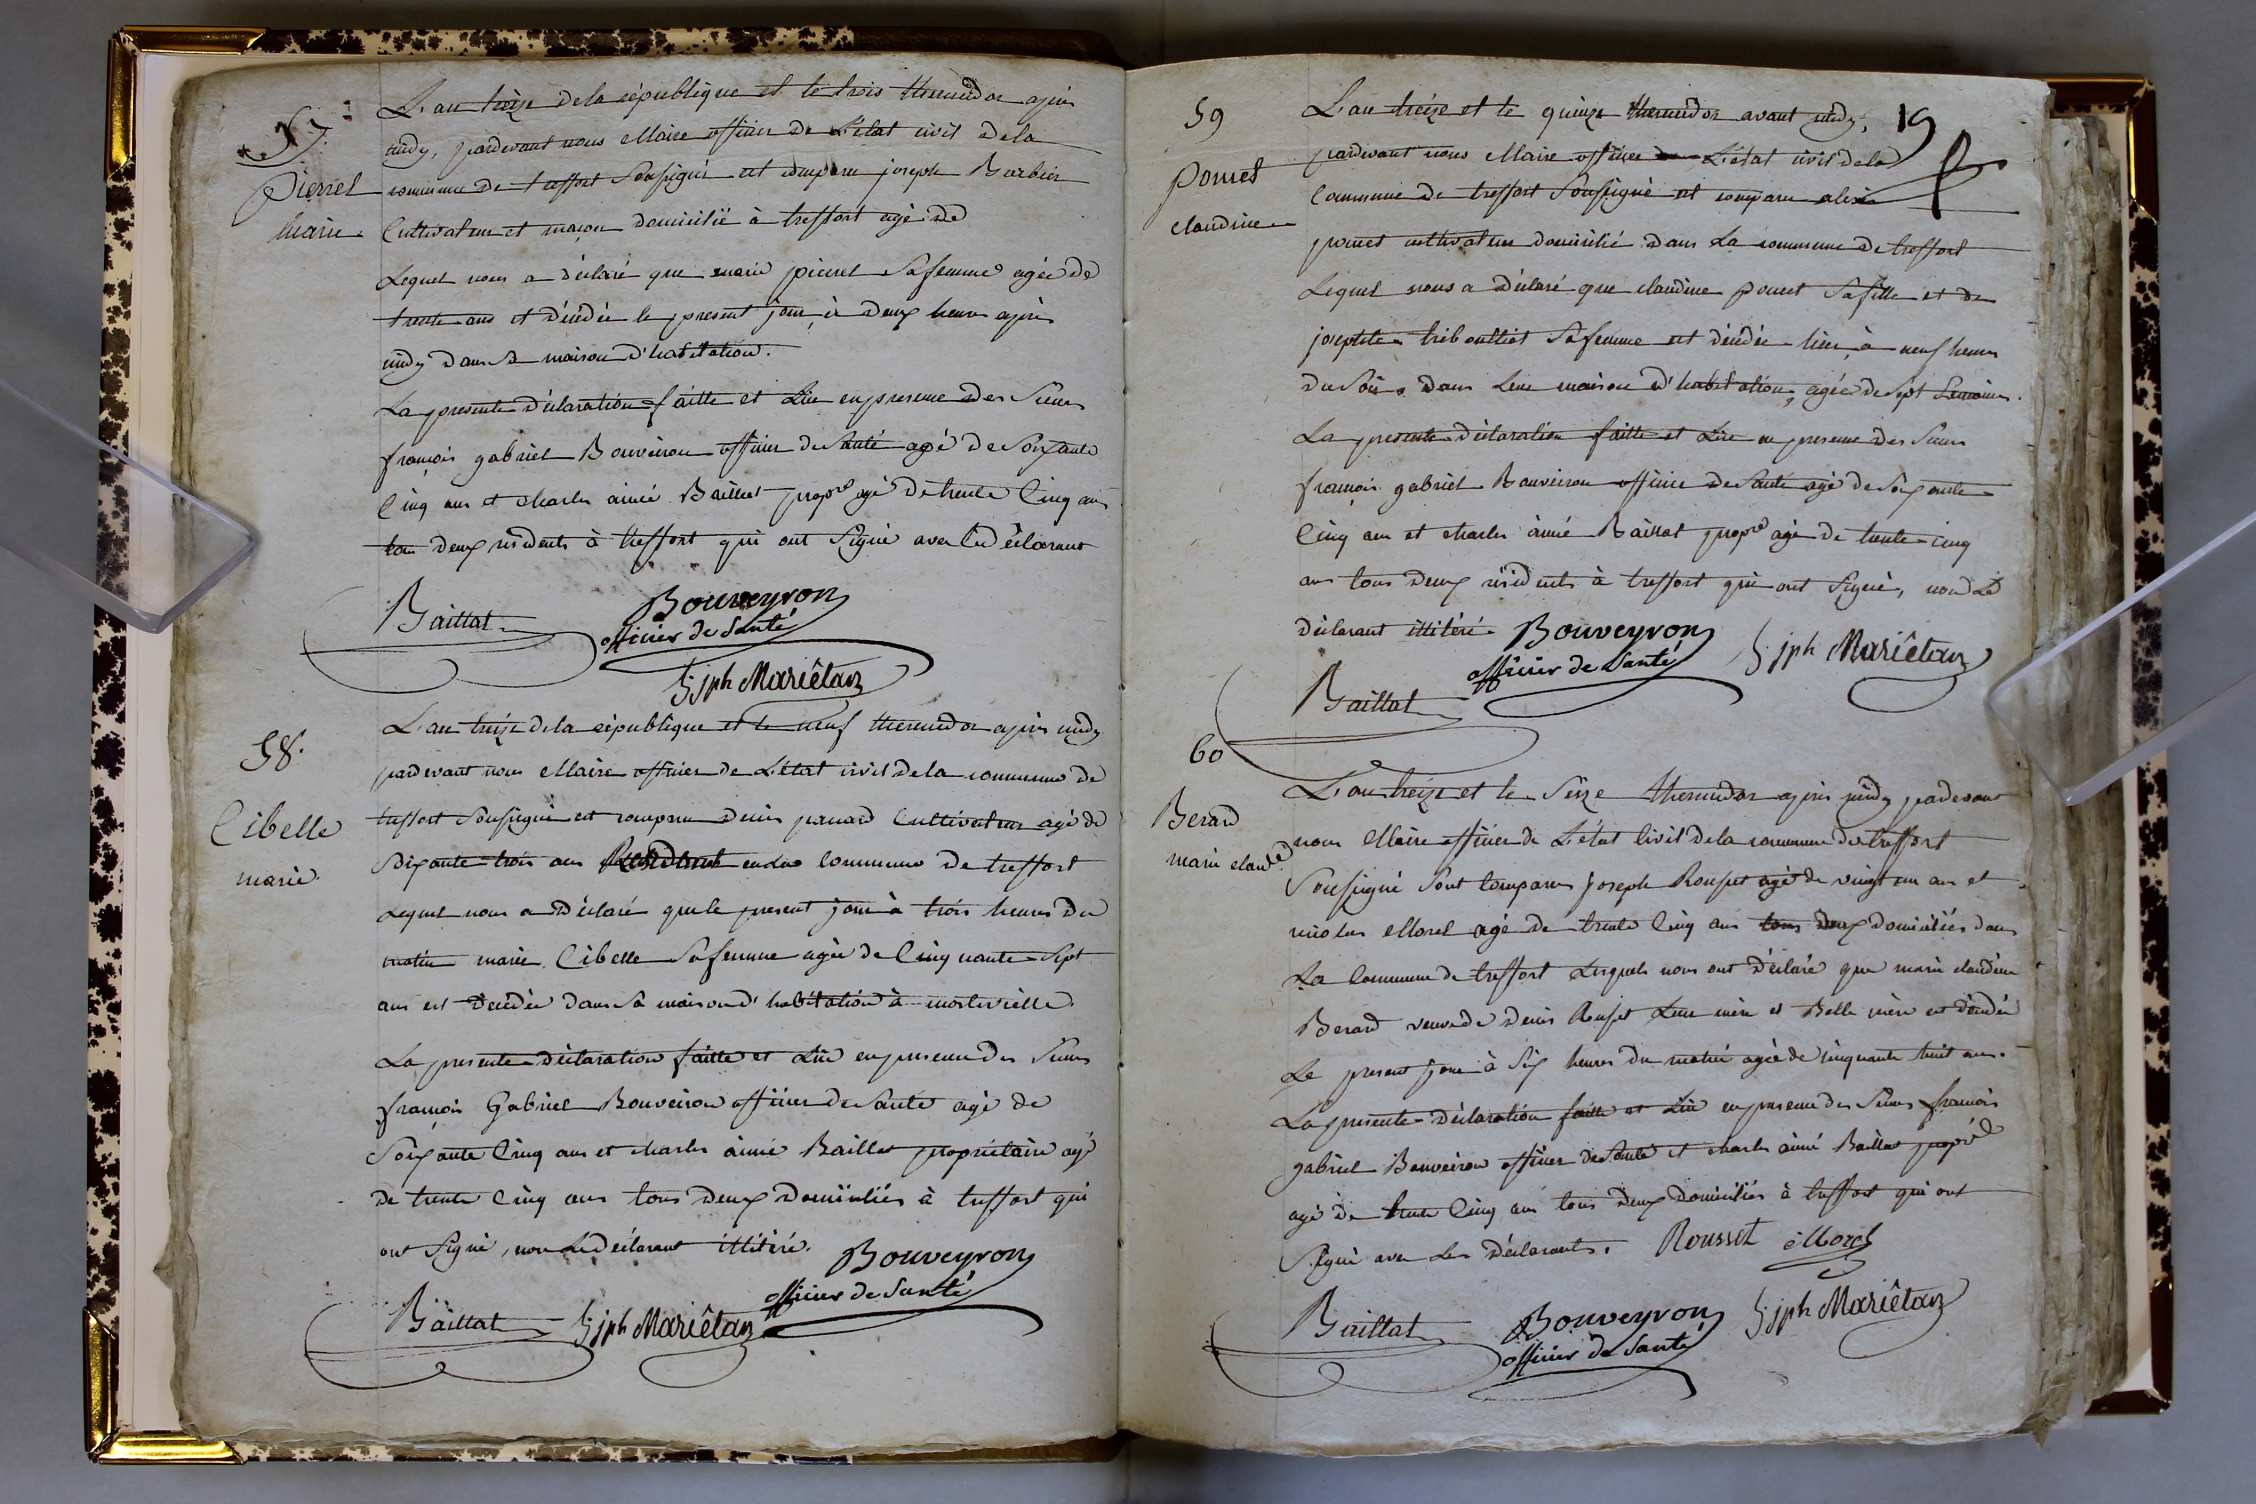 57.
Pierret
marie.
L'an treize de la république et le trois thermidor après
midy, pardevant nous Maire officier de L'état civil de la
commune de treffort Soussigné est comparu joseph Barbier
Cultivateur et maçon domicilié à treffort agé de
Lequel nous a déclaré que marie pierret Sa femme agée de
trente ans est décédée le present jour à deux heures après
midy dans Sa maison d'habitation.
La presente déclaration faitte et Lüe en presence des Sieurs
françois gabriel Bouveiron officier de Santé agé de Soixante
Cinq ans et charles aimé Baillat propre agé de trente Cinq ans
tous deux résidents à treffort qui ont Signé avec Le déclarant
Baillat
Bouveyron
officier de Santé
jph Mariêtan
58.
Cibelle
marie
L'an treize de la république et le neuf thermidor après midy
pardevant nous Maire officier de L'état civil de la commune de
treffort Soussigné est comparu denis panard Cultivateur agé de
Soixante-trois ans Résidant en La Commune de treffort
Lequel nous a déclaré que le present jour à trois heures du
matin marie Cibelle Sa femme agée de Cinquante-Sept
ans est décédée dans Sa maison d'habitation à
La presente déclaration faitte et Lüe en presence des Sieurs
françois Gabriel Bouveiron officier de Santé agé de
Soixante Cinq ans et charles aimé Baillat propriétaire agé
de trente Cinq ans tous deux Domiciliés à treffort qui
ont Signé, non Le déclarant illitéré.
Bouveyron
officier de Santé
Baillat
jph Mariêtan
19
59
Poncet
claudine
L'an treize et le quinze thermidor avant midy,
pardevant nous Maire officier de L'état civil de la
Commune de treffort Soussigné est comparu alexis
poncet cultivateur domicilié dans La commune de treffort
Lequel nous a déclaré que claudine poncet Sa fille et de
josephte tribouilliet Sa femme est décédée hier, à neuf heures
du Soir, dans Leur maison d'habitation, agée de Sept Semaines.
La presente déclaration faitte et Lüe en presence des Sieurs
françois gabriel Bouveiron officier de Santé agé de Soixante
Cinq ans et charles aimé Baillat propre agé de trente-cinq
ans tous deux résidents à treffort qui ont Signé, non Le
déclarant illitéré.
Bouveyron
officier de Santé
jph Mariêtan
Baillat
60
Berard
marie claude
L'an treize et le Seize thermidor après midy pardevant
nous Maire officier de L'état Civil de la commune de treffort
Soussigné Sont Comparus joseph Rousset agé de vingt un ans et
nicolas Morel agé de trente Cinq ans tous deux domiciliés dans
La Commune de treffort Lesquels nous ont déclaré que marie claudine
Berard veuve de denis Rousset Leur mère et Belle mère est décédée
Le present jour à Six heures du matin agée de cinquante huit ans.
La presente déclaration faitte et Lüe en presence des Sieurs françois
gabriel Bouveiron officier de Santé et charles aimé Baillat propre
agé de trente Cinq ans tous deux Domiciliés à treffort qui ont
Signé avec Les déclarants.
Rousset
Morel
Baillat
Bouveyron
officier de Santé
jph Mariêtan